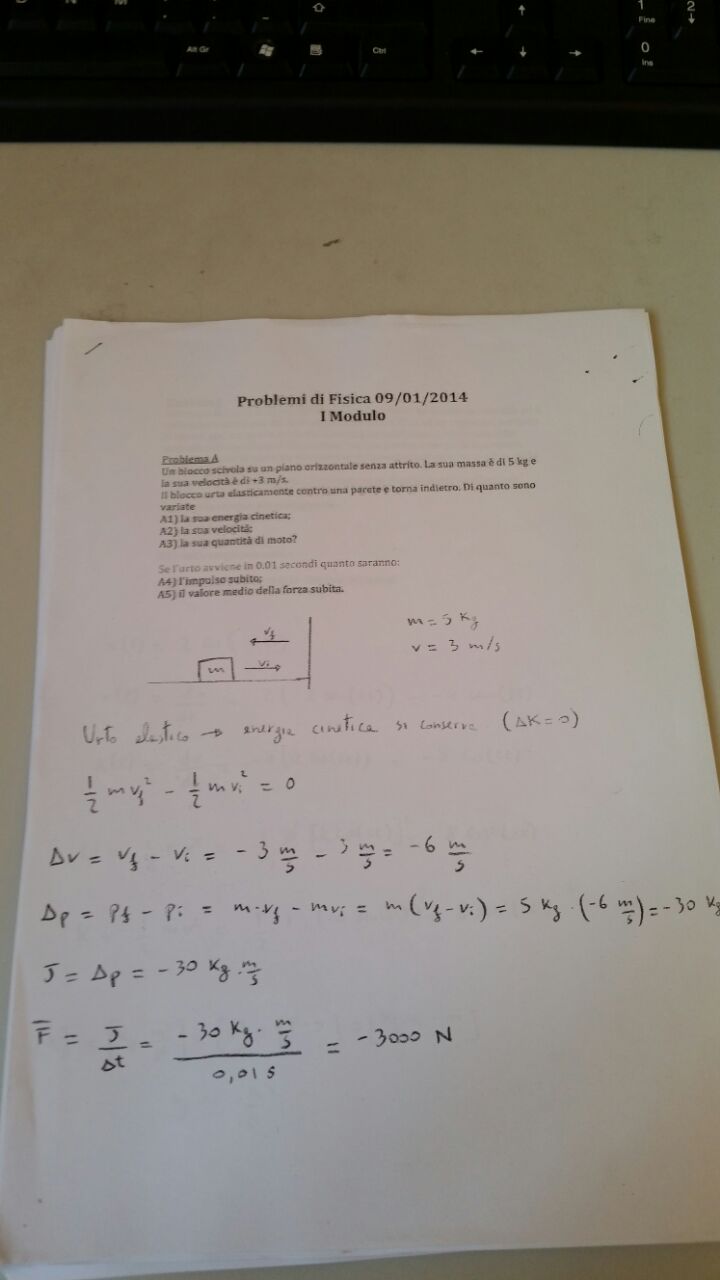 Alt Gr
Ctrl
1
Fine
2
0
Ins
Problemi di Fisica 09/01/2014
I Modulo
Problema A
Un blocco scivola su un piano orizzontale senza attrito. La sua massa è di 5 kg e
la sua velocità è di +3 m/s.
Il blocco urta elasticamente contro una parete e torna indietro. Di quanto sono
variate
A1) la sua energia cinetica;
A2) la sua velocità;
A3) la sua quantità di moto?
Se l'urto avviene in 0.01 secondi quanto saranno:
A4) l'impulso subito;
A5) il valore medio della forza subita.
vf
m vi
m = 5 Kg
v = 3 m/s
Urto elastico → energia cinetica si conserva (ΔK=0)
1/2 m vf² - 1/2 m vi² = 0
Δv = vf - vi = - 3 m/s - 3 m/s = -6 m/s
Δp = pf - pi = m·vf - mvi = m(vf - vi) = 5 Kg · (-6 m/s) = -30 Kg
J = Δp = -30 Kg · m/s
F̅ = J/Δt = -30 Kg · m/s / 0,01 s = -3000 N